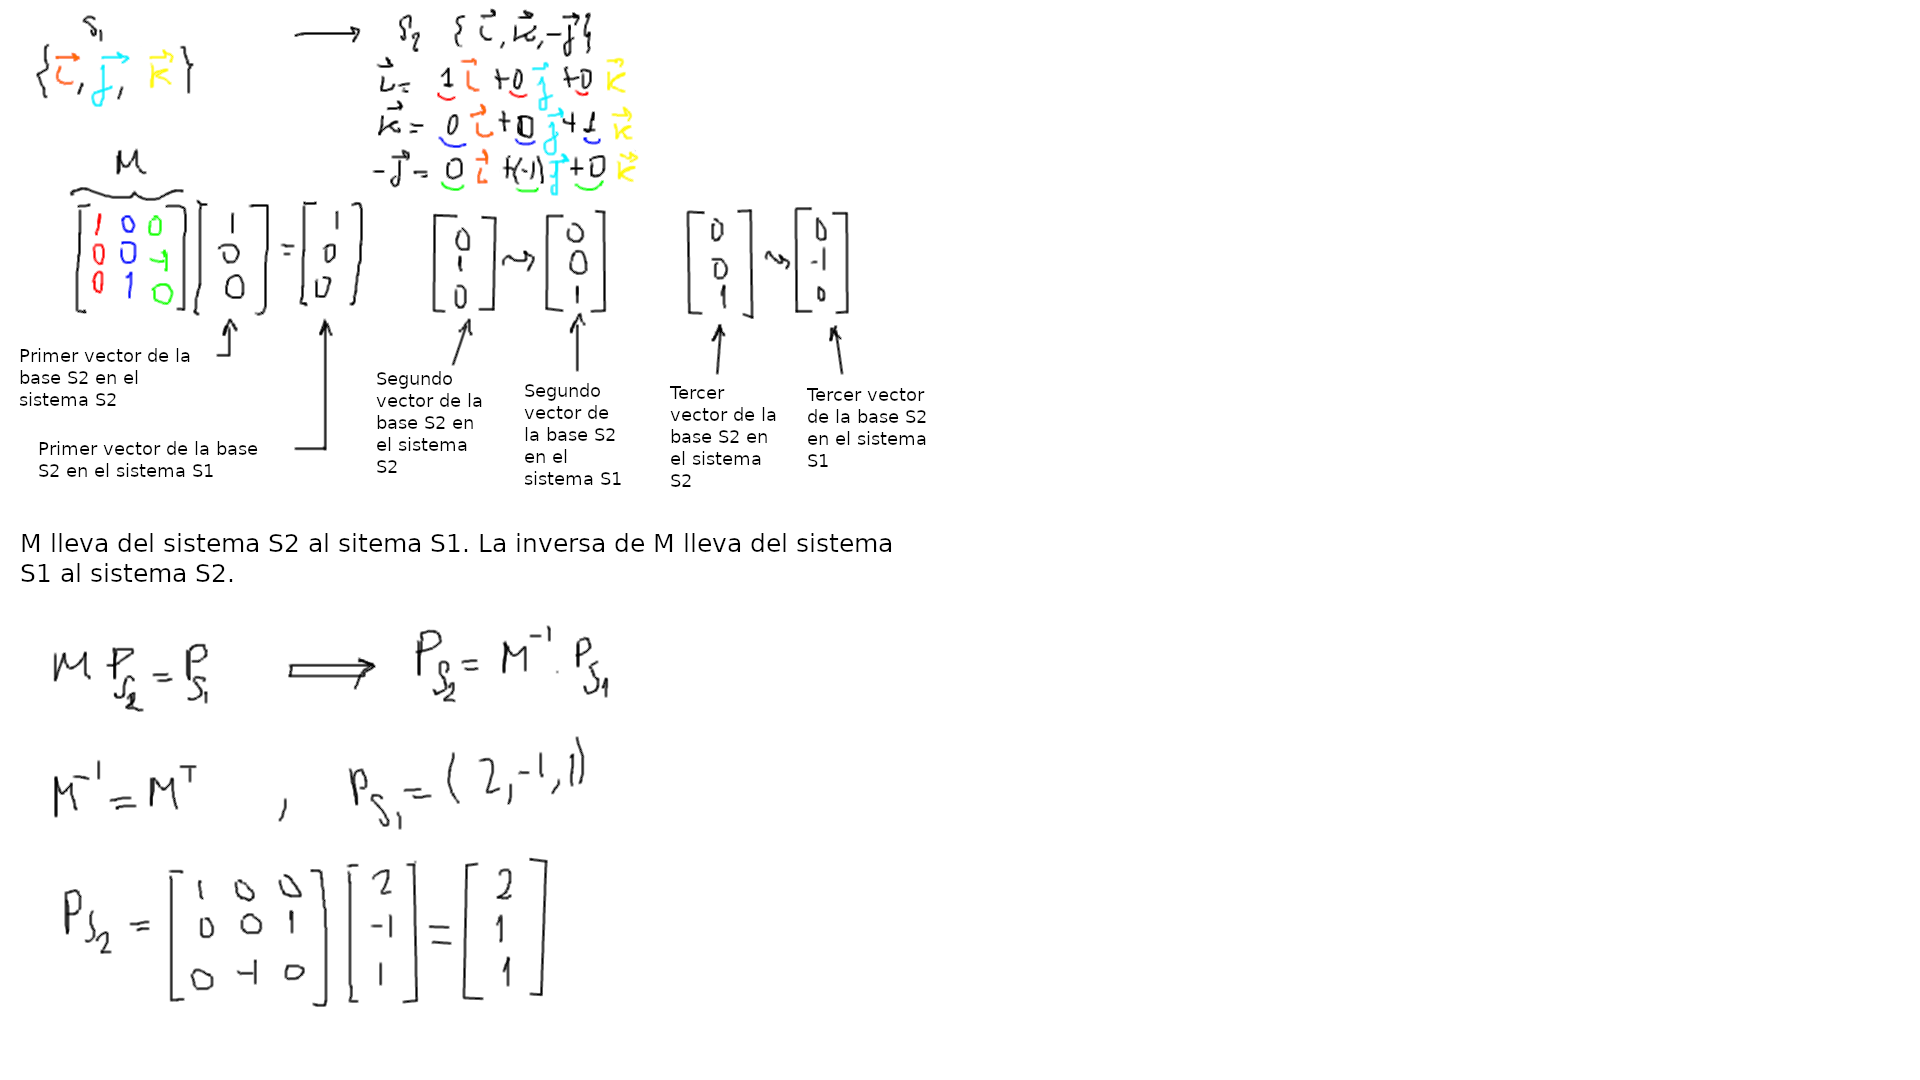 S₁ ⟶ S₂ {i⃗, k⃗, -j⃗}
{i⃗, j⃗, k⃗}
i⃗ = 1 i⃗ + 0 j⃗ + 0 k⃗
k⃗ = 0 i⃗ + 0 j⃗ + 1 k⃗
-j⃗ = 0 i⃗ + (-1) j⃗ + 0 k⃗
M
[1 0 0] [1] = [1] [0] ⤳ [0] [0] ⤳ [0]
[0 0 -1] [0] [0] [1] [0] [0] [-1]
[0 1 0] [0] [0] [0] [1] [1] [0]
Primer vector de la
base S2 en el
sistema S2
Primer vector de la base
S2 en el sistema S1
Segundo
vector de la
base S2 en
el sistema
S2
Segundo
vector de
la base S2
en el
sistema S1
Tercer
vector de la
base S2 en
el sistema
S2
Tercer vector
de la base S2
en el sistema
S1
M lleva del sistema S2 al sitema S1. La inversa de M lleva del sistema
S1 al sistema S2.
M P_S₂ = P_S₁ ⟹ P_S₂ = M⁻¹ · P_S₁
M⁻¹ = Mᵀ , P_S₁ = (2, -1, 1)
[1 0 0] [2] [2]
P_S₂ = [0 0 1] [-1] = [1]
[0 -1 0] [1] [1]